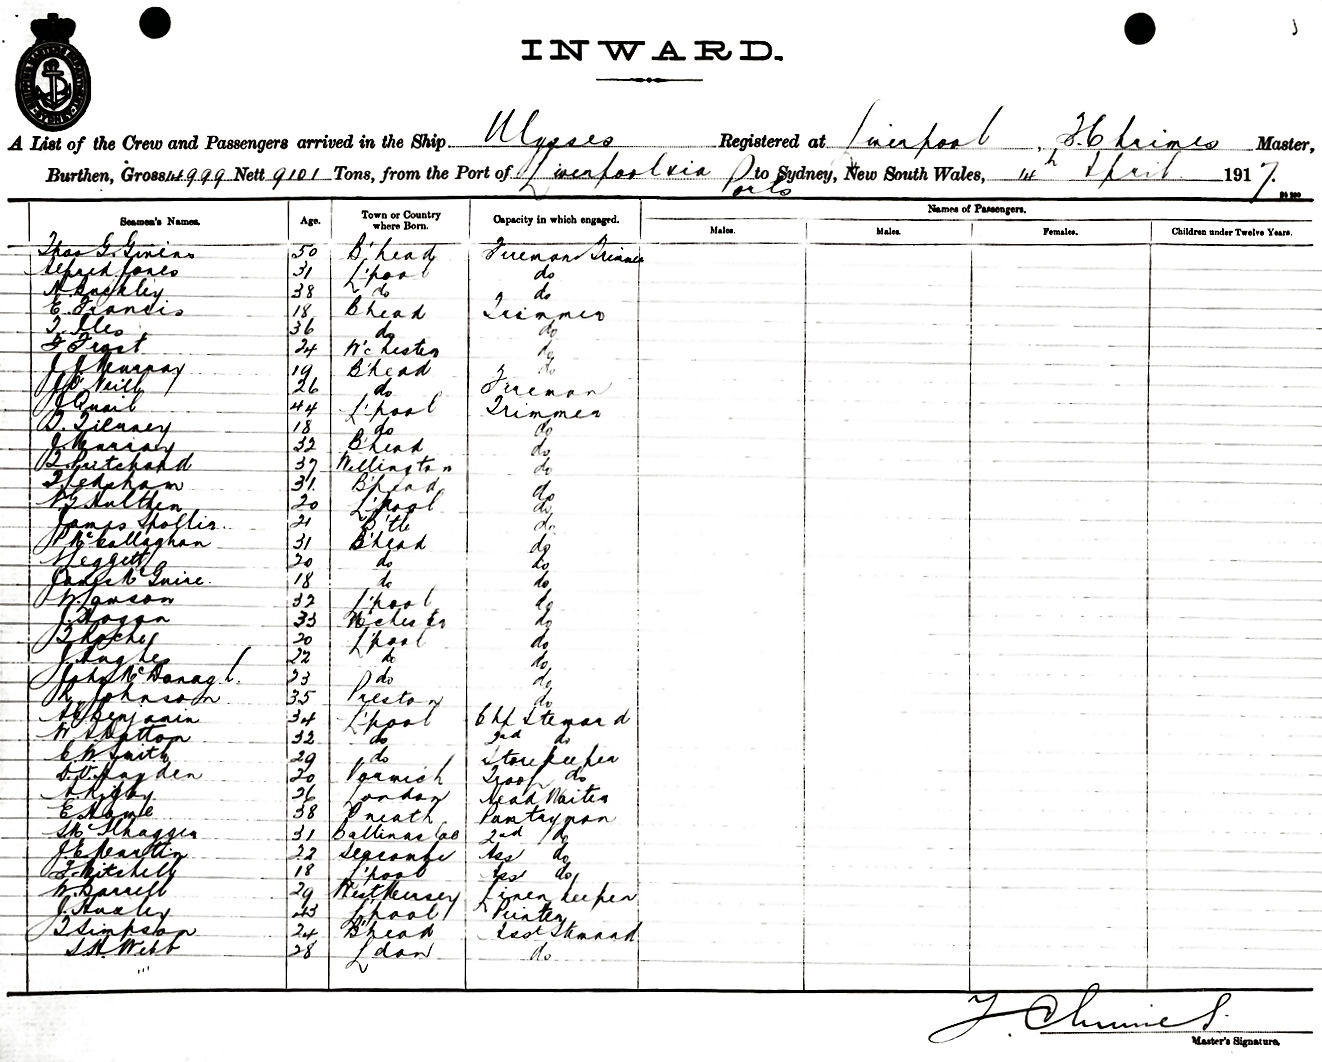 INWARD.
A List of the Crew and Passengers arrived in the Ship Ulysses Registered at Liverpool, F. Chrimes Master,
Burthen, Gross 14999 Nett 9101 Tons, from the Port of Liverpool via Ports to Sydney, New South Wales, 14th April 1917.
Seamen's Names. Age. Town or Country where Born. Capacity in which engaged. Names of Passengers.
Males. Males. Females. Children under Twelve Years.
Thos G. Givens 50 B'head Fireman Trimmer
Alfred Jones 31 L'pool do
N. Buckley 38 do do
E. Francis 18 Bhead Trimmer
T. Iles 36 do do
F Frost 24 W'chester do
J. J. Murray 19 B'head do
J. O'Neill 26 do Fireman
J Quail 44 L'pool Trimmer
D. Tierney 18 do do
J 32 B'head do
T Pritchard 37 Wellington do
31 B'head do
20 L'pool do
James 21 B'tle do
P McCallaghan 31 B'head do
Leggett 20 do do
James McGuire. 18 do do
W. Lawson 32 L'pool do
J. Hogan 33 Mchester do
T Rochel 20 L'pool do
J. Hughes 22 do do
John McDonagh. 23 do do
R. Johnson 35 Preston do
Benjamin 34 L'pool Chf Steward
W. S. Dutton 32 do 2nd do
E W Smith 29 do Storekeeper
D. V. Hayden 20 Norwich Troop do
A. Rigby 26 London Head Waiter
E Hame 38 Pantryman
31 Ballinasloe 2nd do
J. E. Martin 22 Seacombe Ass do
F. Mitchell 18 L'pool Ass do,
W. Garrell 29 West Mersey Linen keeper
J. Huxley 43 L'pool Printer
T Simpson 24 B'head Asst Steward
S. H. Webb 28 Ldon do
F. Chrimes.
Master's Signature.